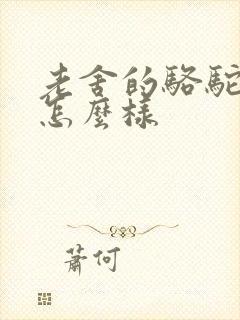 老舍的駱駝
怎麼樣
蕭何